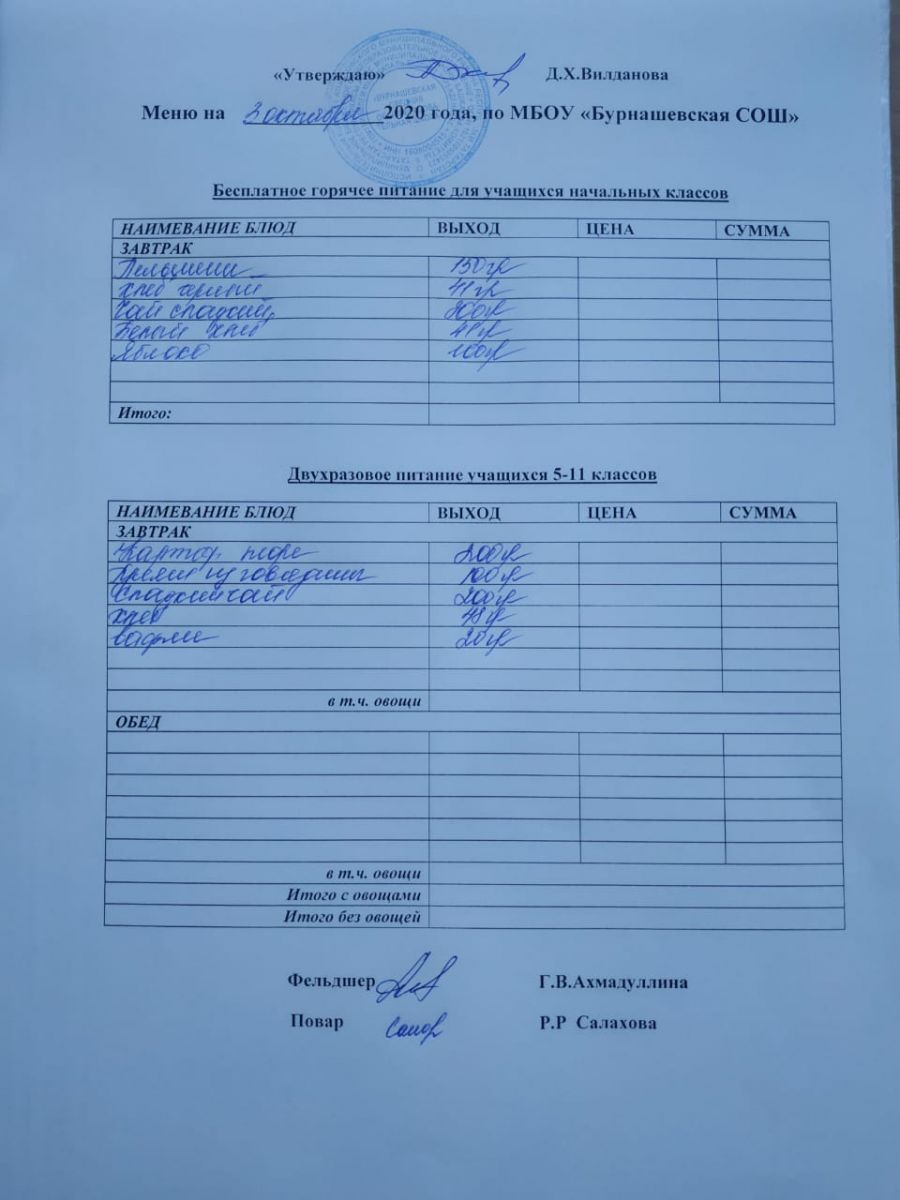 «Утверждаю» Д.Х.Вилданова
Меню на 3 октября 2020 года, по МБОУ «Бурнашевская СОШ»
Бесплатное горячее питание для учащихся начальных классов
НАИМЕВАНИЕ БЛЮД ВЫХОД ЦЕНА СУММА
ЗАВТРАК
Пельмени 150гр
хлеб 41гр
Чай сладкий 200гр
Белый хлеб 41гр
Яблоко 100гр
Итого:
Двухразовое питание учащихся 5-11 классов
НАИМЕВАНИЕ БЛЮД ВЫХОД ЦЕНА СУММА
ЗАВТРАК
Картоф. пюре 200гр
из говядины 100гр
Сладкий чай 200гр
хлеб 48гр
вафли 20гр
в т.ч. овощи
ОБЕД
в т.ч. овощи
Итого с овощами
Итого без овощей
Фельдшер Г.В.Ахмадуллина
Повар Р.Р Салахова